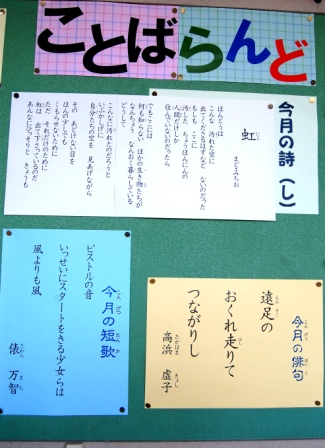 ことばらんど
今月の詩(し)
虹
まどみちお
ほんとうは
こんな 汚れた空に
出てくださるはずなど ないのだった
もしも ここに
汚した ちょうほんにんの
人間だけしか
住んでいないのだったら
でもここには
何も知らない ほかの生き物たちが
なんちょう なんおく 暮らしている
どうして
こんなに汚れたのだろうと
いぶかしげに
自分たちの空を 見あげながら
その あどけない目を
ほんの少しでも
くもらせないために
ただ それだけのために
虹は 出て下さっているのだ
あんなにひっそりと きょうも
今月の俳句
遠足の
おくれ走りて
つながりし
高浜 虚子
今月の短歌
ピストルの音
いっせいにスタートをきる少女らは
風よりも風
俵 万智